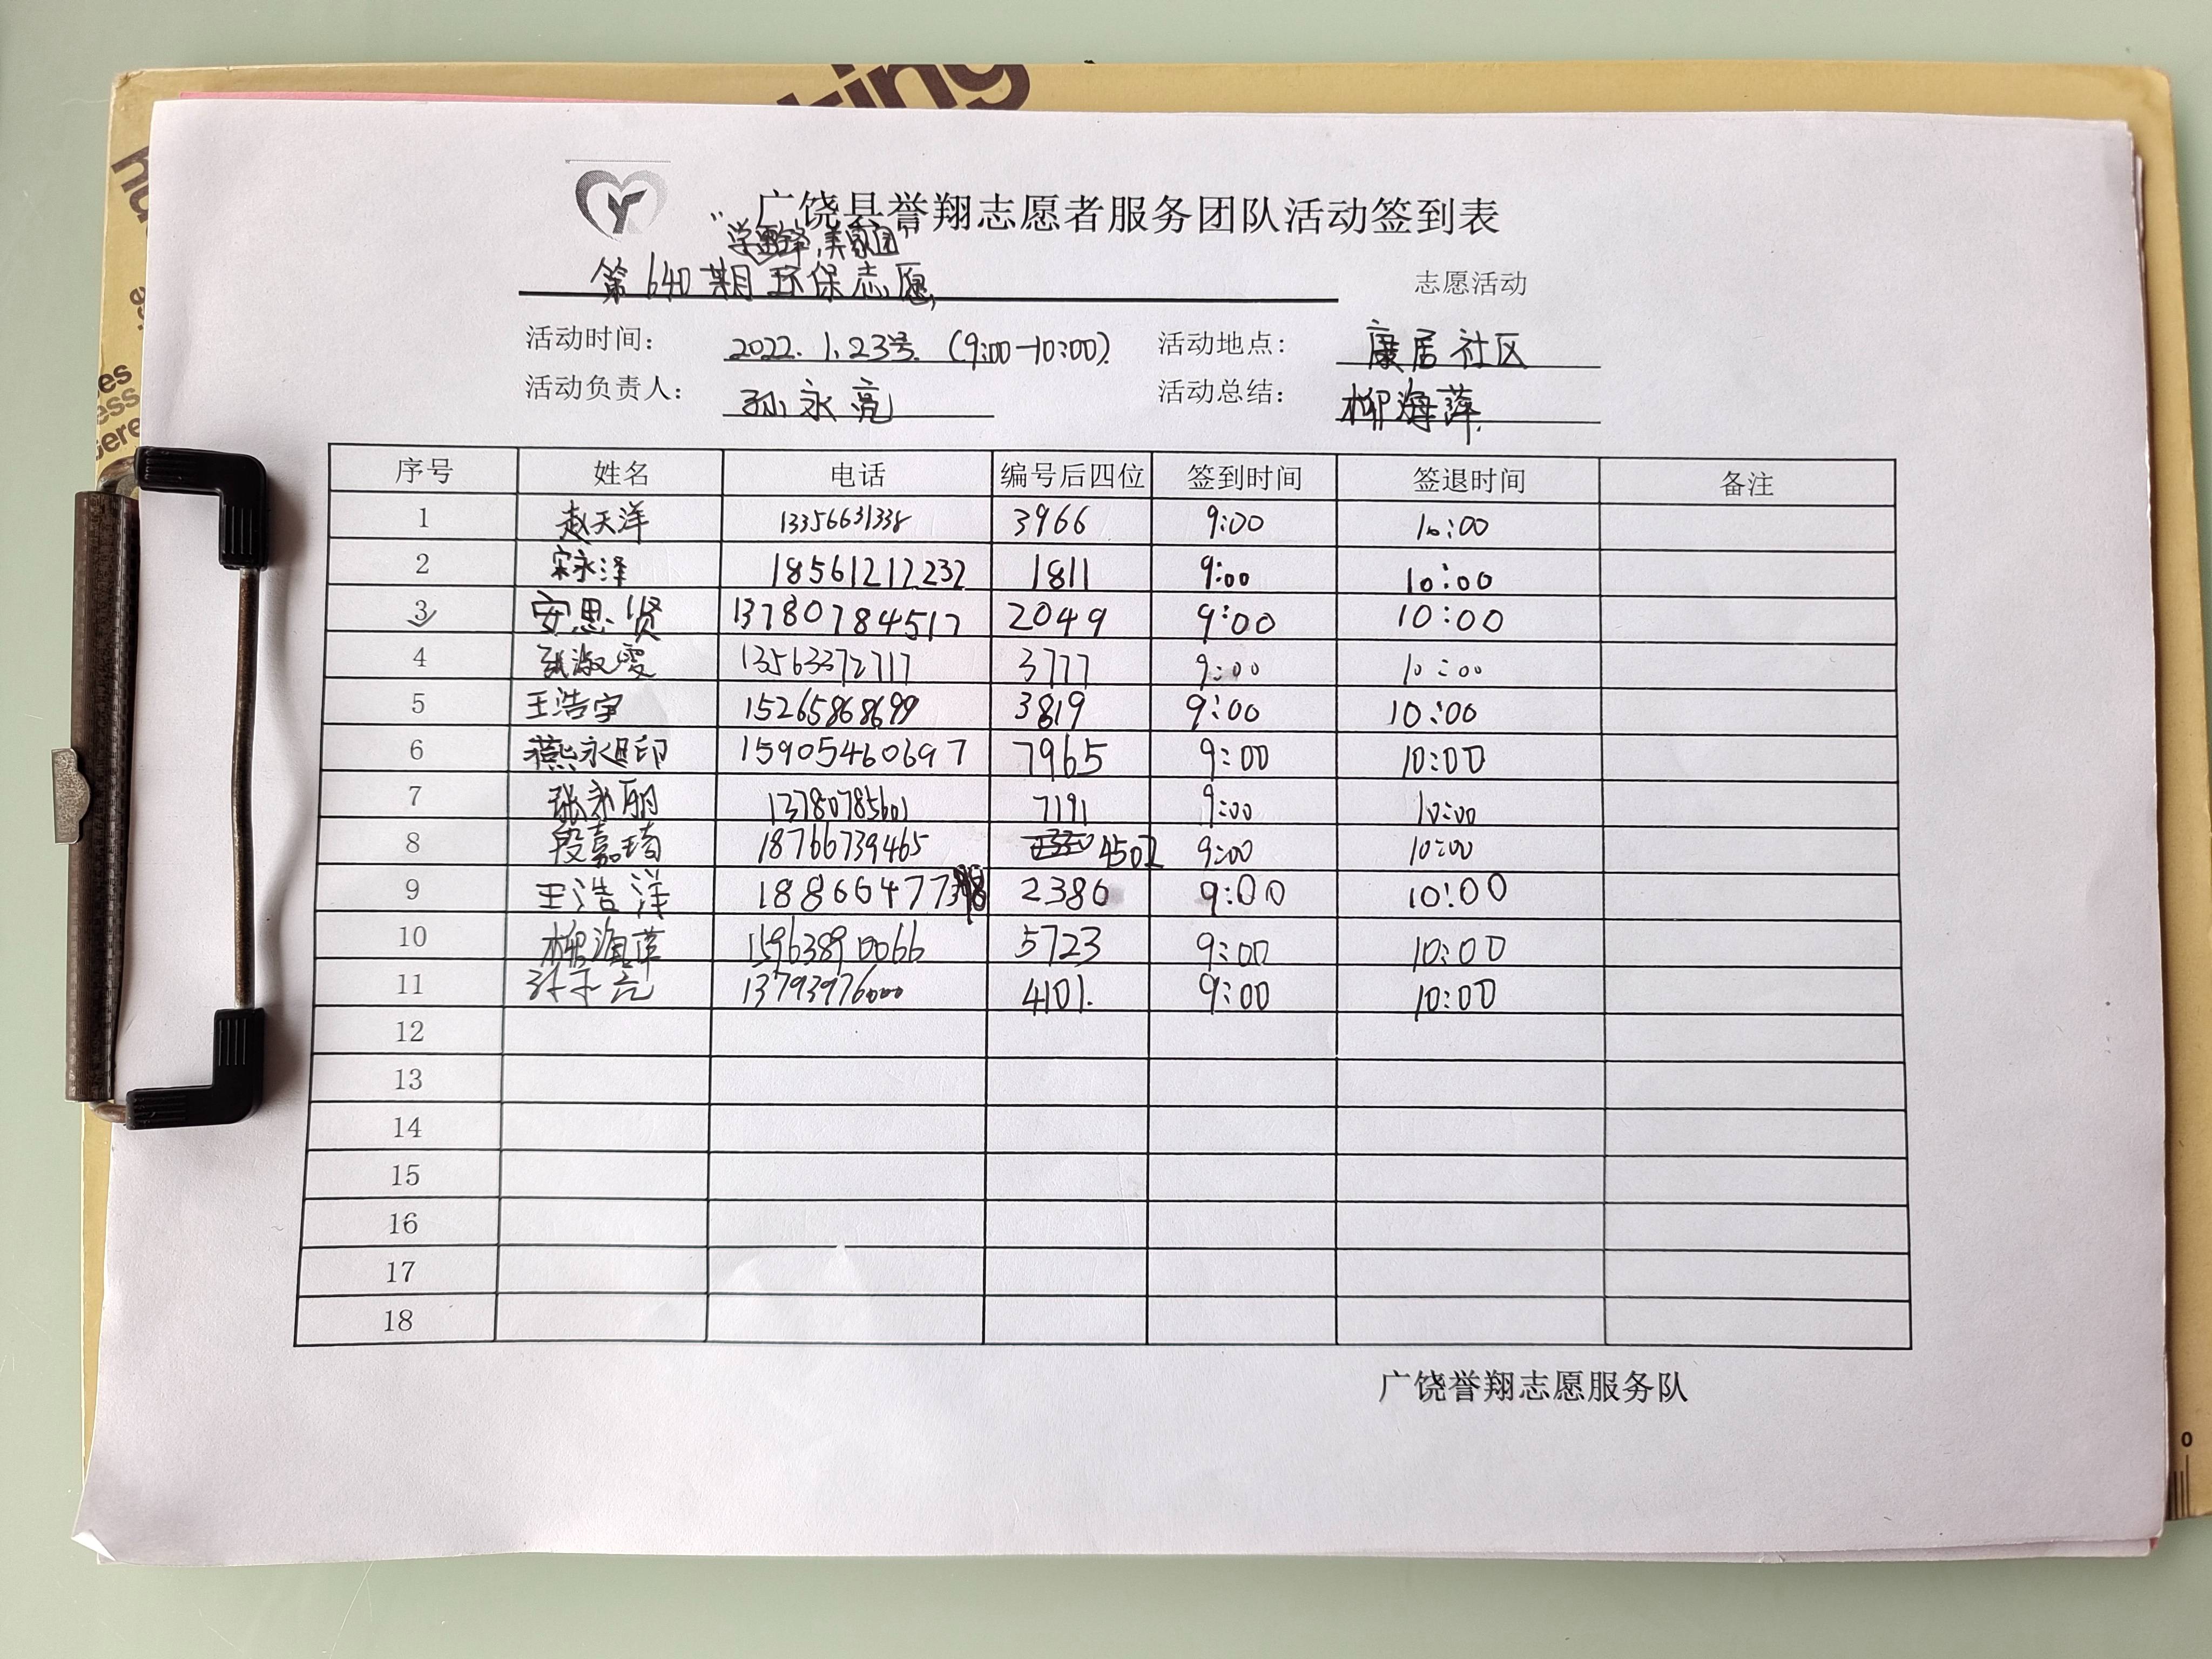 king
广饶县誉翔志愿者服务团队活动签到表
"学雷锋,美家园"
第640期环保志愿 志愿活动
活动时间: 2022.1.23号.(9:00-10:00). 活动地点: 康居社区
活动负责人: 孙永亮 活动总结: 柳海萍.
序号 姓名 电话 编号后四位 签到时间 签退时间 备注
1 赵天洋 13356631338 3966 9:00 10:00
2 宋永泽 18561212232 1811 9:00 10:00
3 安思贤 13780784517 2049 9:00 10:00
4 张淑雯 13563372717 3777 9:00 10:00
5 王浩宇 15265868699 3819 9:00 10:00
6 燕永印 15905460697 7965 9:00 10:00
7 张永丽 13780785601 7191 9:00 10:00
8 段嘉琦 18766739465 4502 9:00 10:00
9 王浩洋 2386 9:00 10:00
10 柳海萍 15963890066 5723 9:00 10:00
11 孙永亮 13793976000 4101. 9:00 10:00
12
13
14
15
16
17
18
广饶誉翔志愿服务队
0